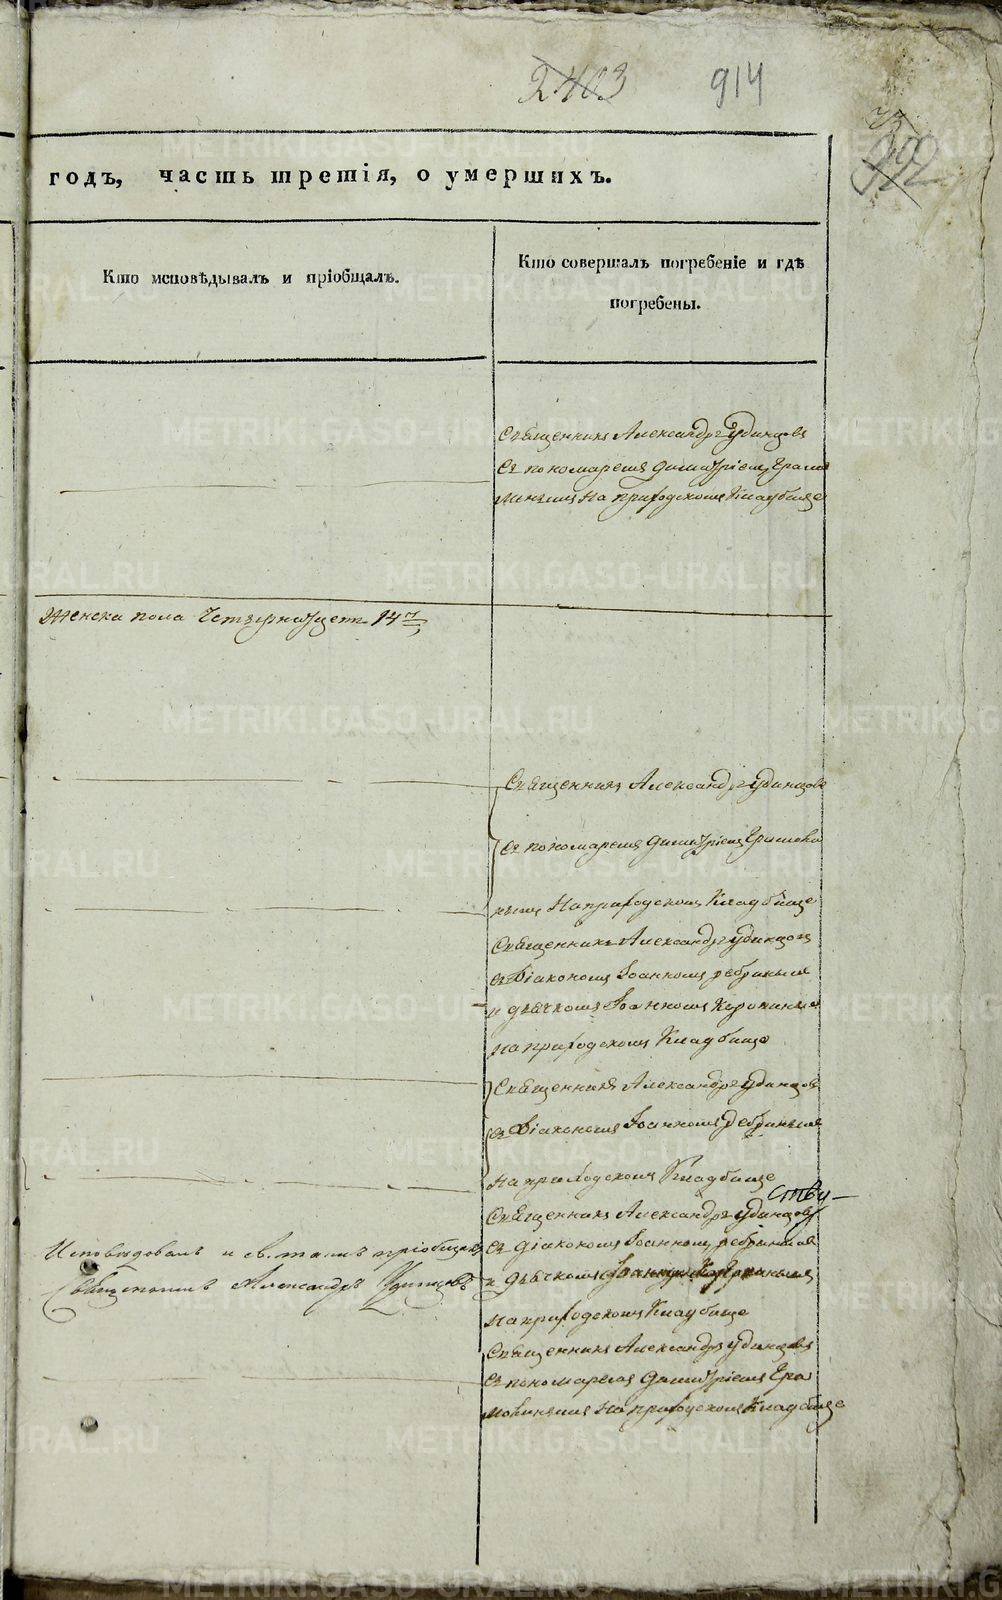 2403
914
годъ, часть третія, о умершихъ.
Кто исповѣдывалъ и пріобщалъ.
Кто совершалъ погребеніе и гдѣ
погребены.
Священникъ Александръ Удинцовъ
съ пономаремъ Димитріемъ
на приходскомъ кладбище
Женска пола Четырнадцеть 14
Священникъ Александръ Удинцовъ
съ пономаремъ Димитріемъ
на приходскомъ кладбище
Священникъ Александръ Удинцовъ
съ Діакономъ Іоанномъ Ребринымъ
и дьячкомъ Іоанномъ
на приходскомъ кладбище
Священникъ Александръ Удинцовъ
съ Діакономъ Іоанномъ Ребринымъ
на приходскомъ кладбище
Священникъ Александръ Удинцовъ
Исповѣдовалъ и св. таинъ пріобщалъ
съ діакономъ Іоанномъ Ребринымъ
Священникъ Александръ Удинцовъ
и дьячкомъ
на приходскомъ кладбище
Священникъ Александръ Удинцовъ
съ пономаремъ Димитріемъ
на приходскомъ кладбище
METRIKI.GASO-URAL.RU